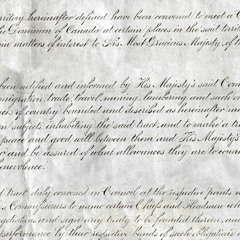 erritory hereinafter defined have been convened to meet a C
he Dominion of Canada at certain places in the said terri
on matters of interest to His Most Gracious Majesty of t
been notified and informed by His Majesty's said Com
migration, trade, travel, mining, lumbering, and such o
act of country bounded and described as hereinafter m
an subjects inhabiting the said tract, and to make a tr
peace and good will between them and His Majesty's
and be assured of what allowances they are to coun
enevolence.
d tract duly convened in Council at the respective points n
Commissioners to name certain Chiefs and Headmen who
negotiations and sign any treaty to be founded thereon, and
performance by their respective bands of such obligations